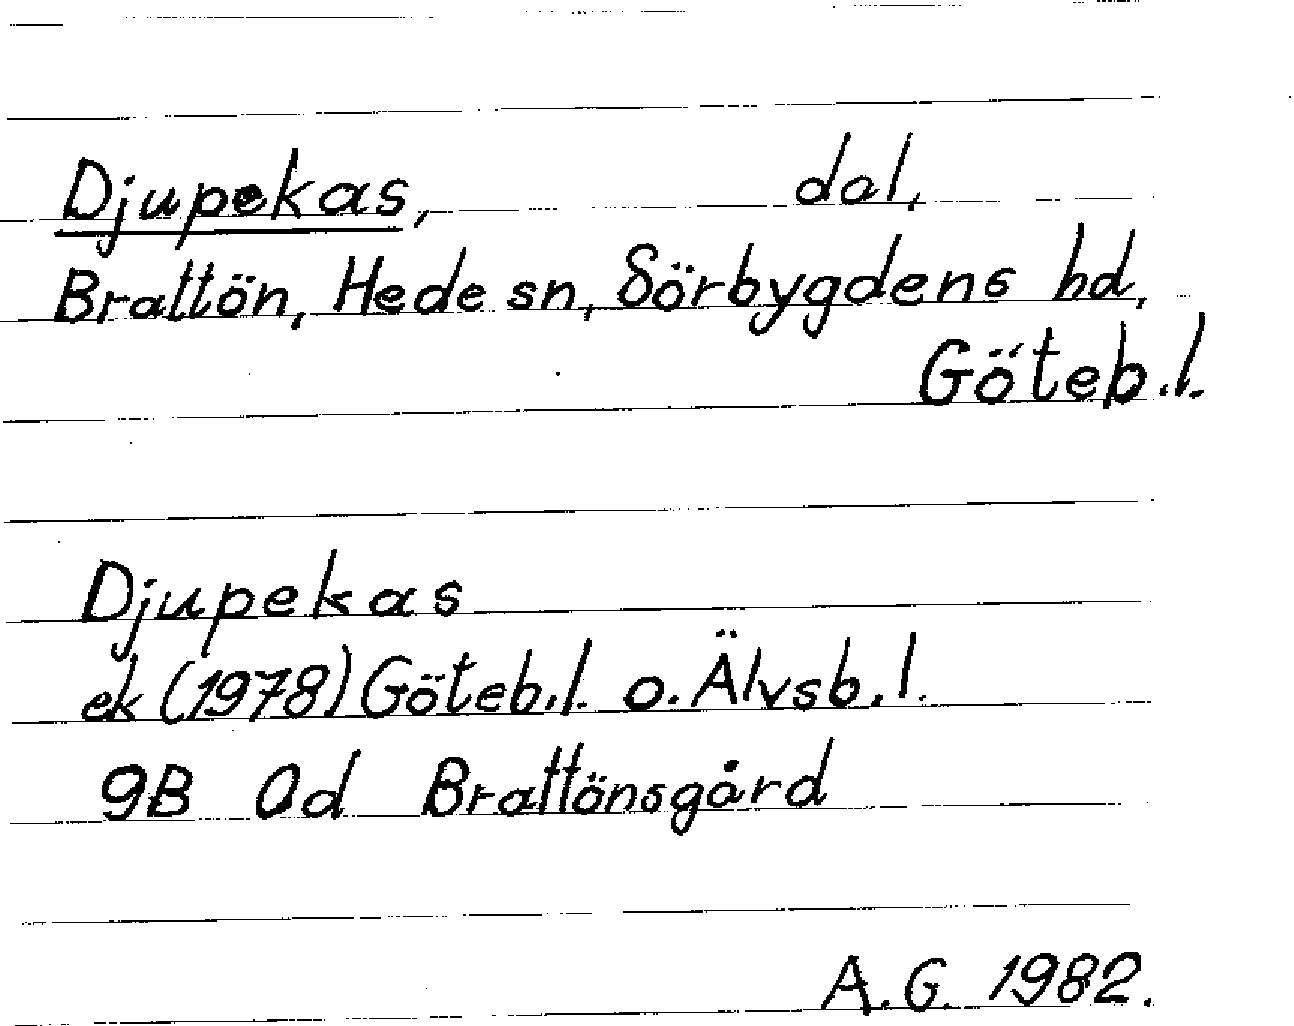 Djupekas, dal,
Brattön, Hede sn, Sörbygdens hd,
Göteb.l.
Djupekas
ek (1978) Göteb.l. o. Älvsb.l.
9B 0d Brattönsgård
A.G. 1982.